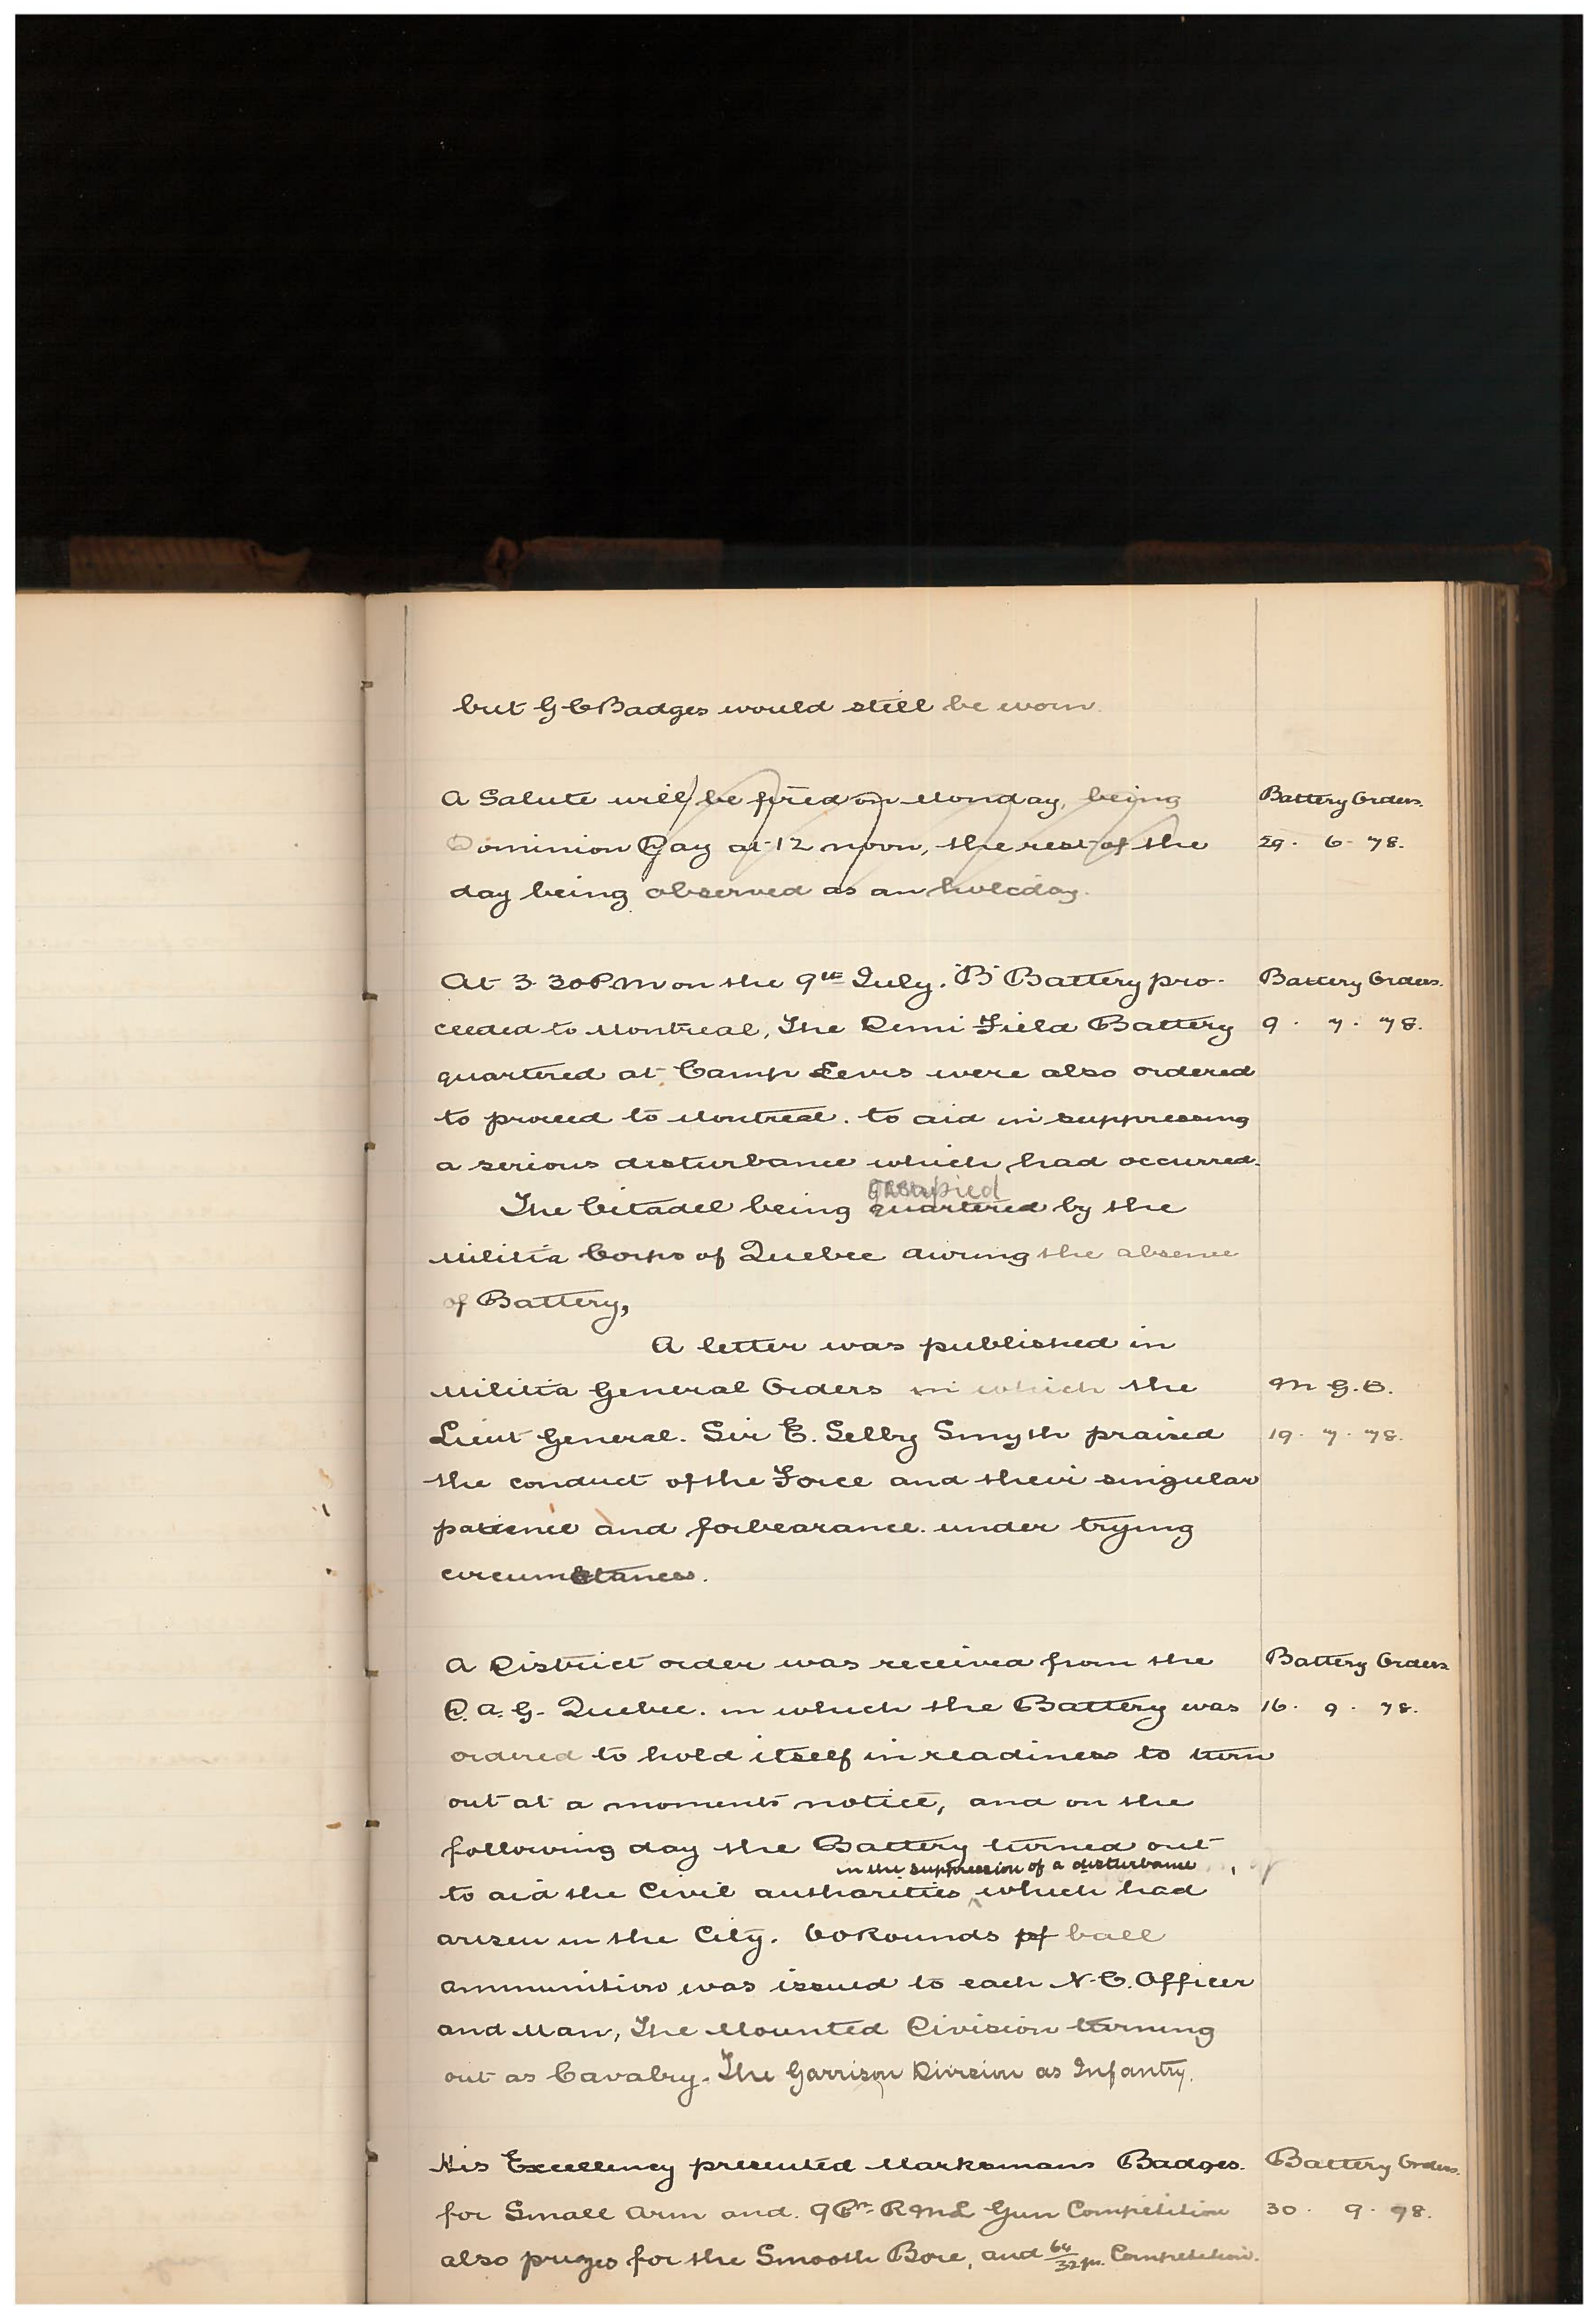 but G C Badges would still be worn.
A Salute will be fired on Monday, being
Battery Orders.
Dominion Day at 12 noon, the rest of the
29. 6. 78.
day being observed as an holiday.
At 3.30 P m on the 9th July. "B" Battery pro-
Battery Orders.
ceeded to Montreal, The Demi Field Battery
9. 7. 78.
quartered at Camp Levis were also ordered
to proceed to Montreal. to aid in suppressing
a serious disturbance which had occurred.
occupied
The Citadel being quartered by the
Militia Corps of Quebec during the absence
of Battery,
A letter was published in
Militia General Orders in which the
M G.O.
Lieut General. Sir E. Selby Smyth praised
19. 7. 78.
the conduct of the Force and their singular
patience and forbearance. under trying
circumstances.
A District order was received from the
Battery Orders
D. A. G. Quebec. in which the Battery was
16. 9. 78.
ordered to hold itself in readiness to turn
out at a moments notice, and on the
following day the Battery turned out
in the suppression of a disturbance
to aid the Civil authorities, which had
arisen in the City. 60 Rounds of ball
ammunition was issued to each N.C. Officer
and Man, The Mounted Division turning
out as Cavalry. The Garrison Division as Infantry.
His Excellency presented Marksmans Badges.
Battery Orders.
for Small Arm and. 9 Pr. R M L Gun Competition
30. 9. 78.
also prizes for the Smooth Bore, and 64/32 pr. Competition.